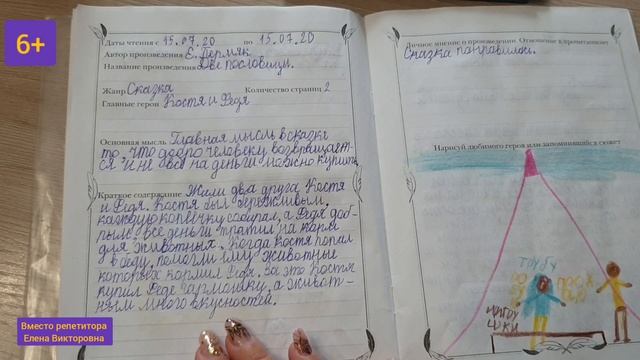 6+
Даты чтения с 15.07.20 по 15.07.20
Автор произведения Е. Пермяк
Название произведения Две пословицы.
Жанр Сказка Количество страниц 2
Главные герои Костя и Федя
Основная мысль Главная мысль в сказке
то, что добро человеку возвращает-
ся и не всё на деньги можно купить
Краткое содержание Жили два друга Костя
и Федя. Костя был бережливым,
каждую копеечку собирал, а Федя доб-
рым: все деньги тратил на корм
для животных. Когда Костя попал
в беду, помогли ему животные
которых кормил Федя. За это Костя
купил Феде гармошку, а живот-
ным много вкусностей.
Личное мнение о произведении. Отношение к прочитанному
Сказка понравилась.
Нарисуй любимого героя или запомнившийся сюжет
Вместо репетитора
Елена Викторовна